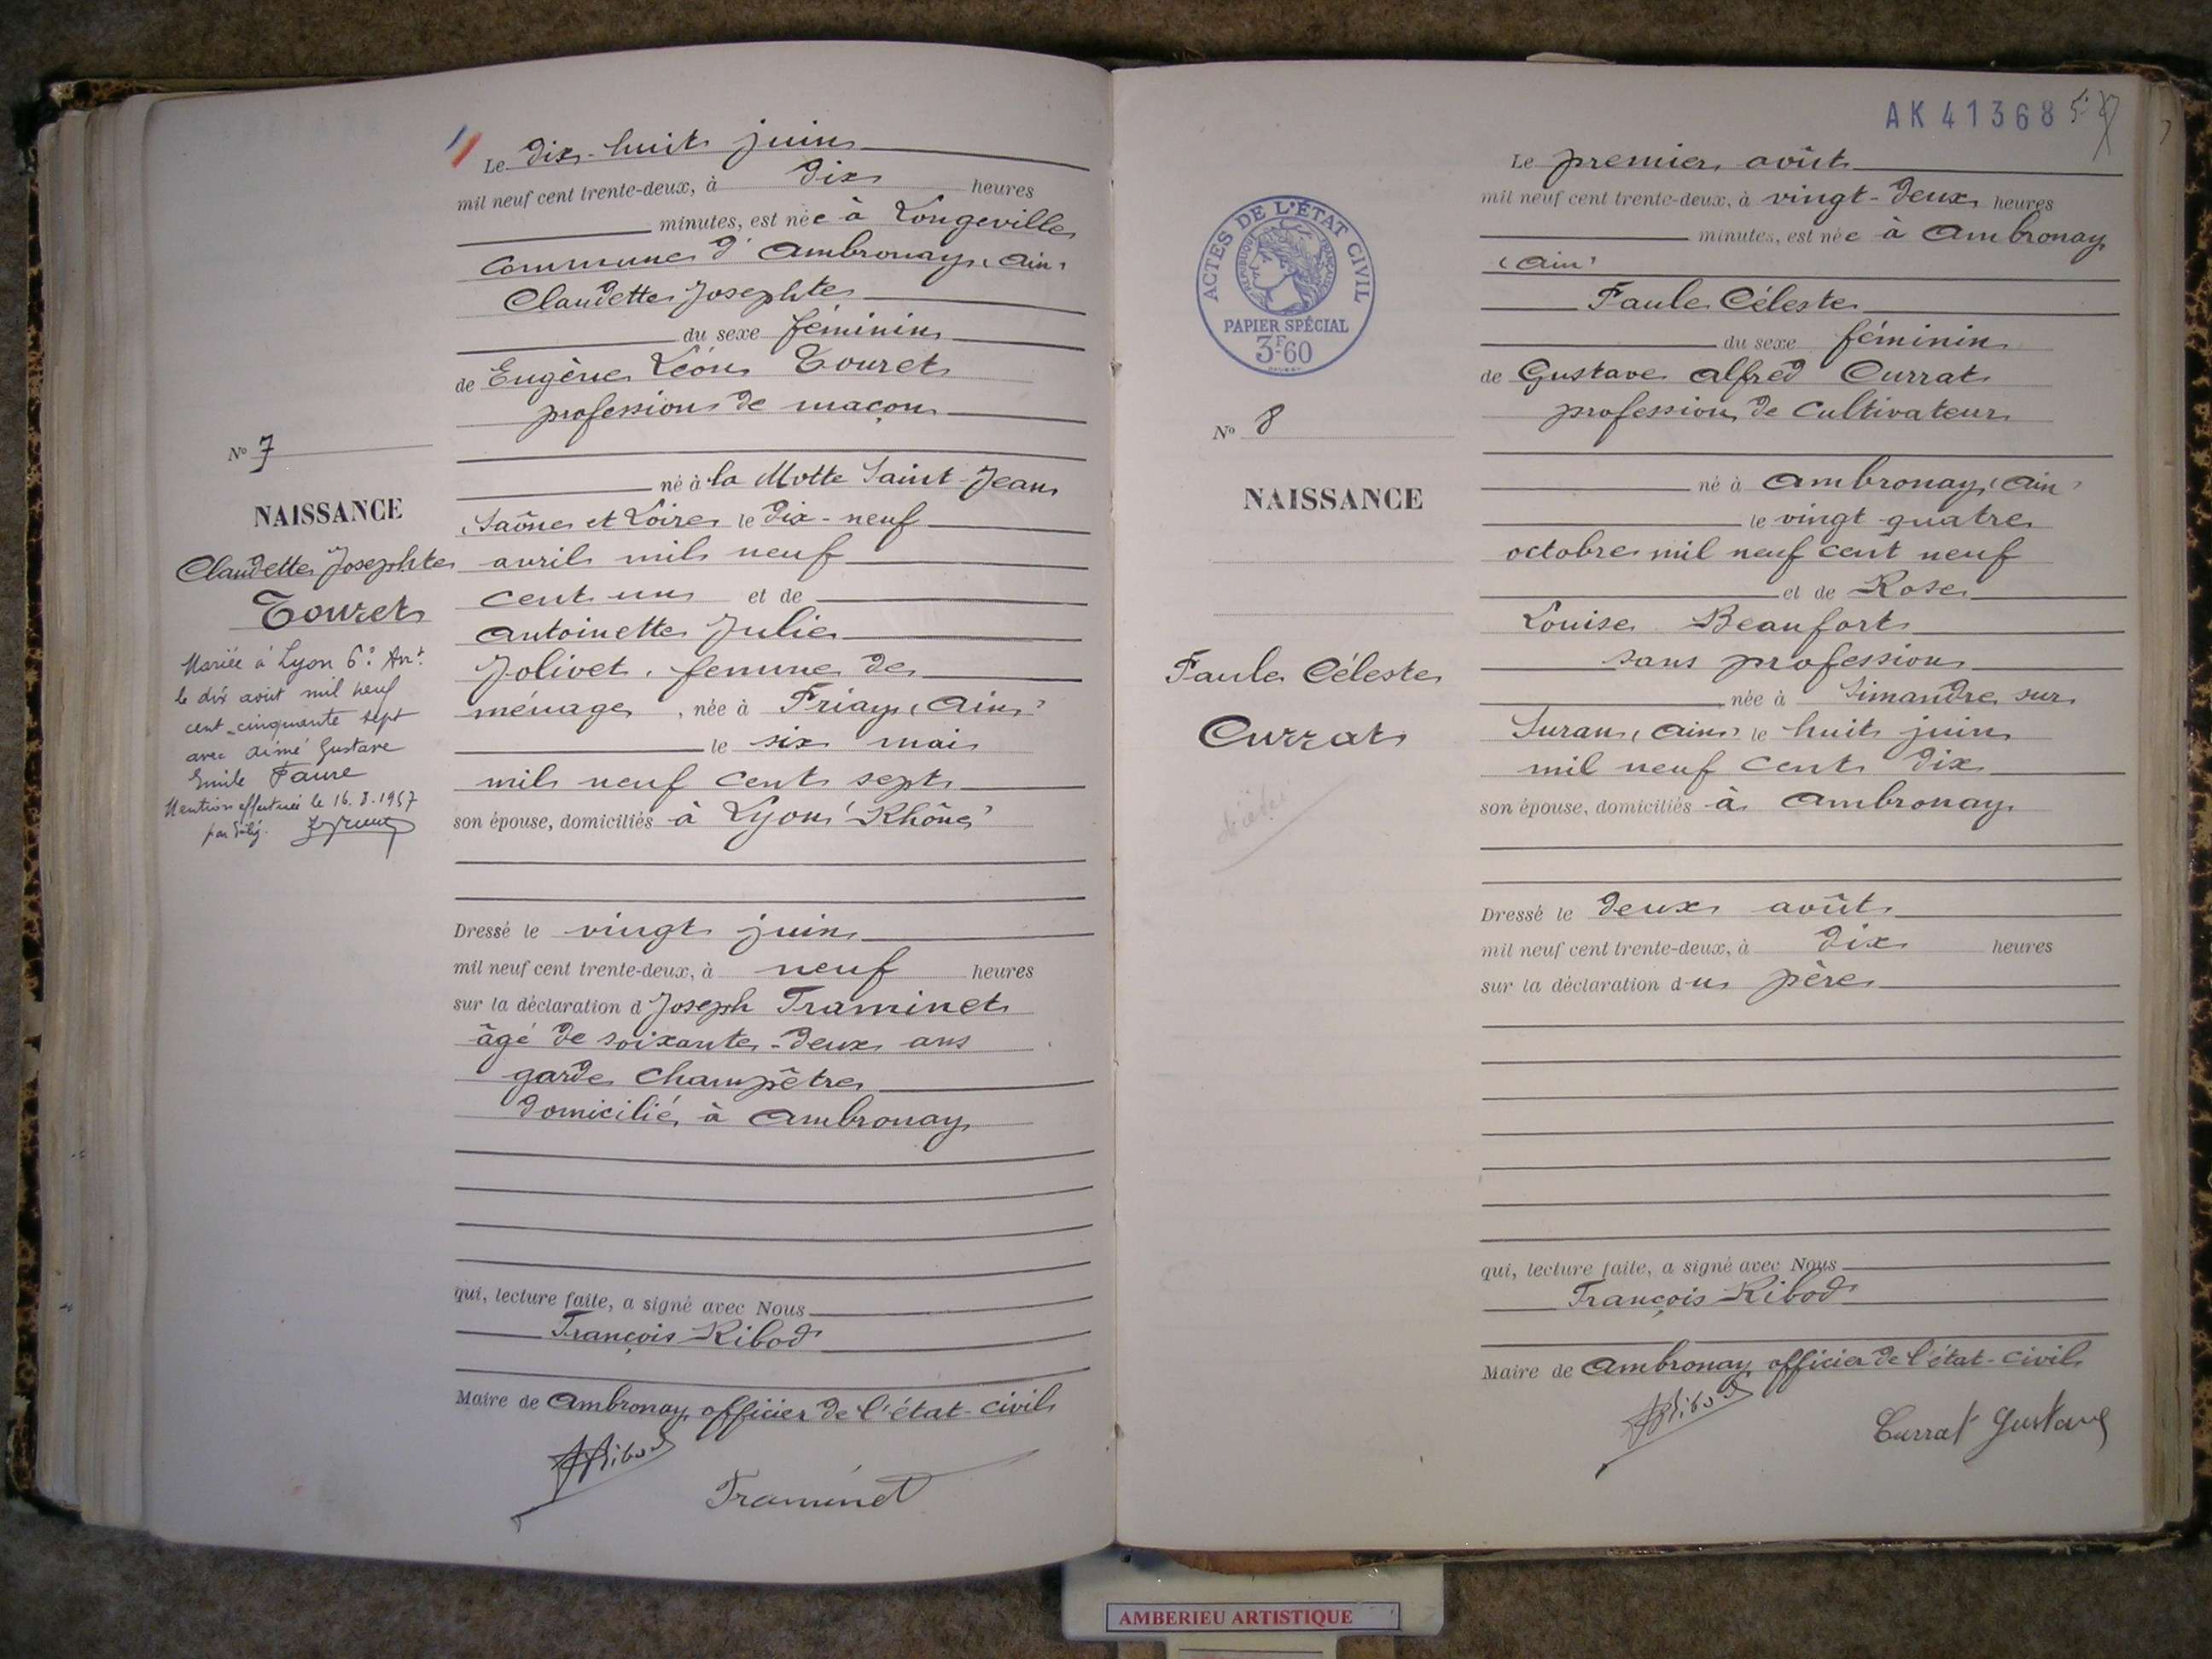 Le dix-huit juin
mil neuf cent trente-deux, à dix heures
minutes, est née à Longeville
commune d'Ambronay (Ain)
Claudette Josephte
du sexe féminin
de Eugène Léon Touret
profession de maçon
né à la Motte Saint-Jean
(Saône et Loire) le dix-neuf
avril mil neuf
cent un et de
Antoinette Julie
Jolivet, femme de
ménage, née à Priay (Ain)
le six mai
mil neuf cent sept
son épouse, domiciliés à Lyon (Rhône)
Dressé le vingt juin
mil neuf cent trente-deux, à neuf heures
sur la déclaration d Joseph Traminet
âgé de soixante-deux ans
garde champêtre
domicilié à Ambronay
qui, lecture faite, a signé avec Nous
François Ribod
Maire de Ambronay officier de l'état-civil
Ribod
Traminet
N° 7
NAISSANCE
Claudette Josephte
Touret
Mariée à Lyon 6e Arrt
le dix août mil neuf
cent cinquante sept
avec Aimé Gustave
Emile Faure
Mention effectuée le 16.8.1957
par
AK 41368
Le premier août
mil neuf cent trente-deux, à vingt-deux heures
minutes, est née à Ambronay
(Ain)
Paule Céleste
du sexe féminin
de Gustave Alfred Currat
profession de cultivateur
né à Ambronay (Ain)
le vingt-quatre
octobre mil neuf cent neuf
et de Rose
Louise Beaufort
sans profession
née à Simandre sur
Suran (Ain) le huit juin
mil neuf cent dix
son épouse, domiciliés à Ambronay
Dressé le deux août
mil neuf cent trente-deux, à dix heures
sur la déclaration du père
qui, lecture faite, a signé avec Nous
François Ribod
Maire de Ambronay officier de l'état-civil
Ribod
Currat Gustave
ACTES DE L'ÉTAT CIVIL
RÉPUBLIQUE FRANÇAISE
PAPIER SPÉCIAL
3F60
N° 8
NAISSANCE
Paule Céleste
Currat
AMBERIEU ARTISTIQUE